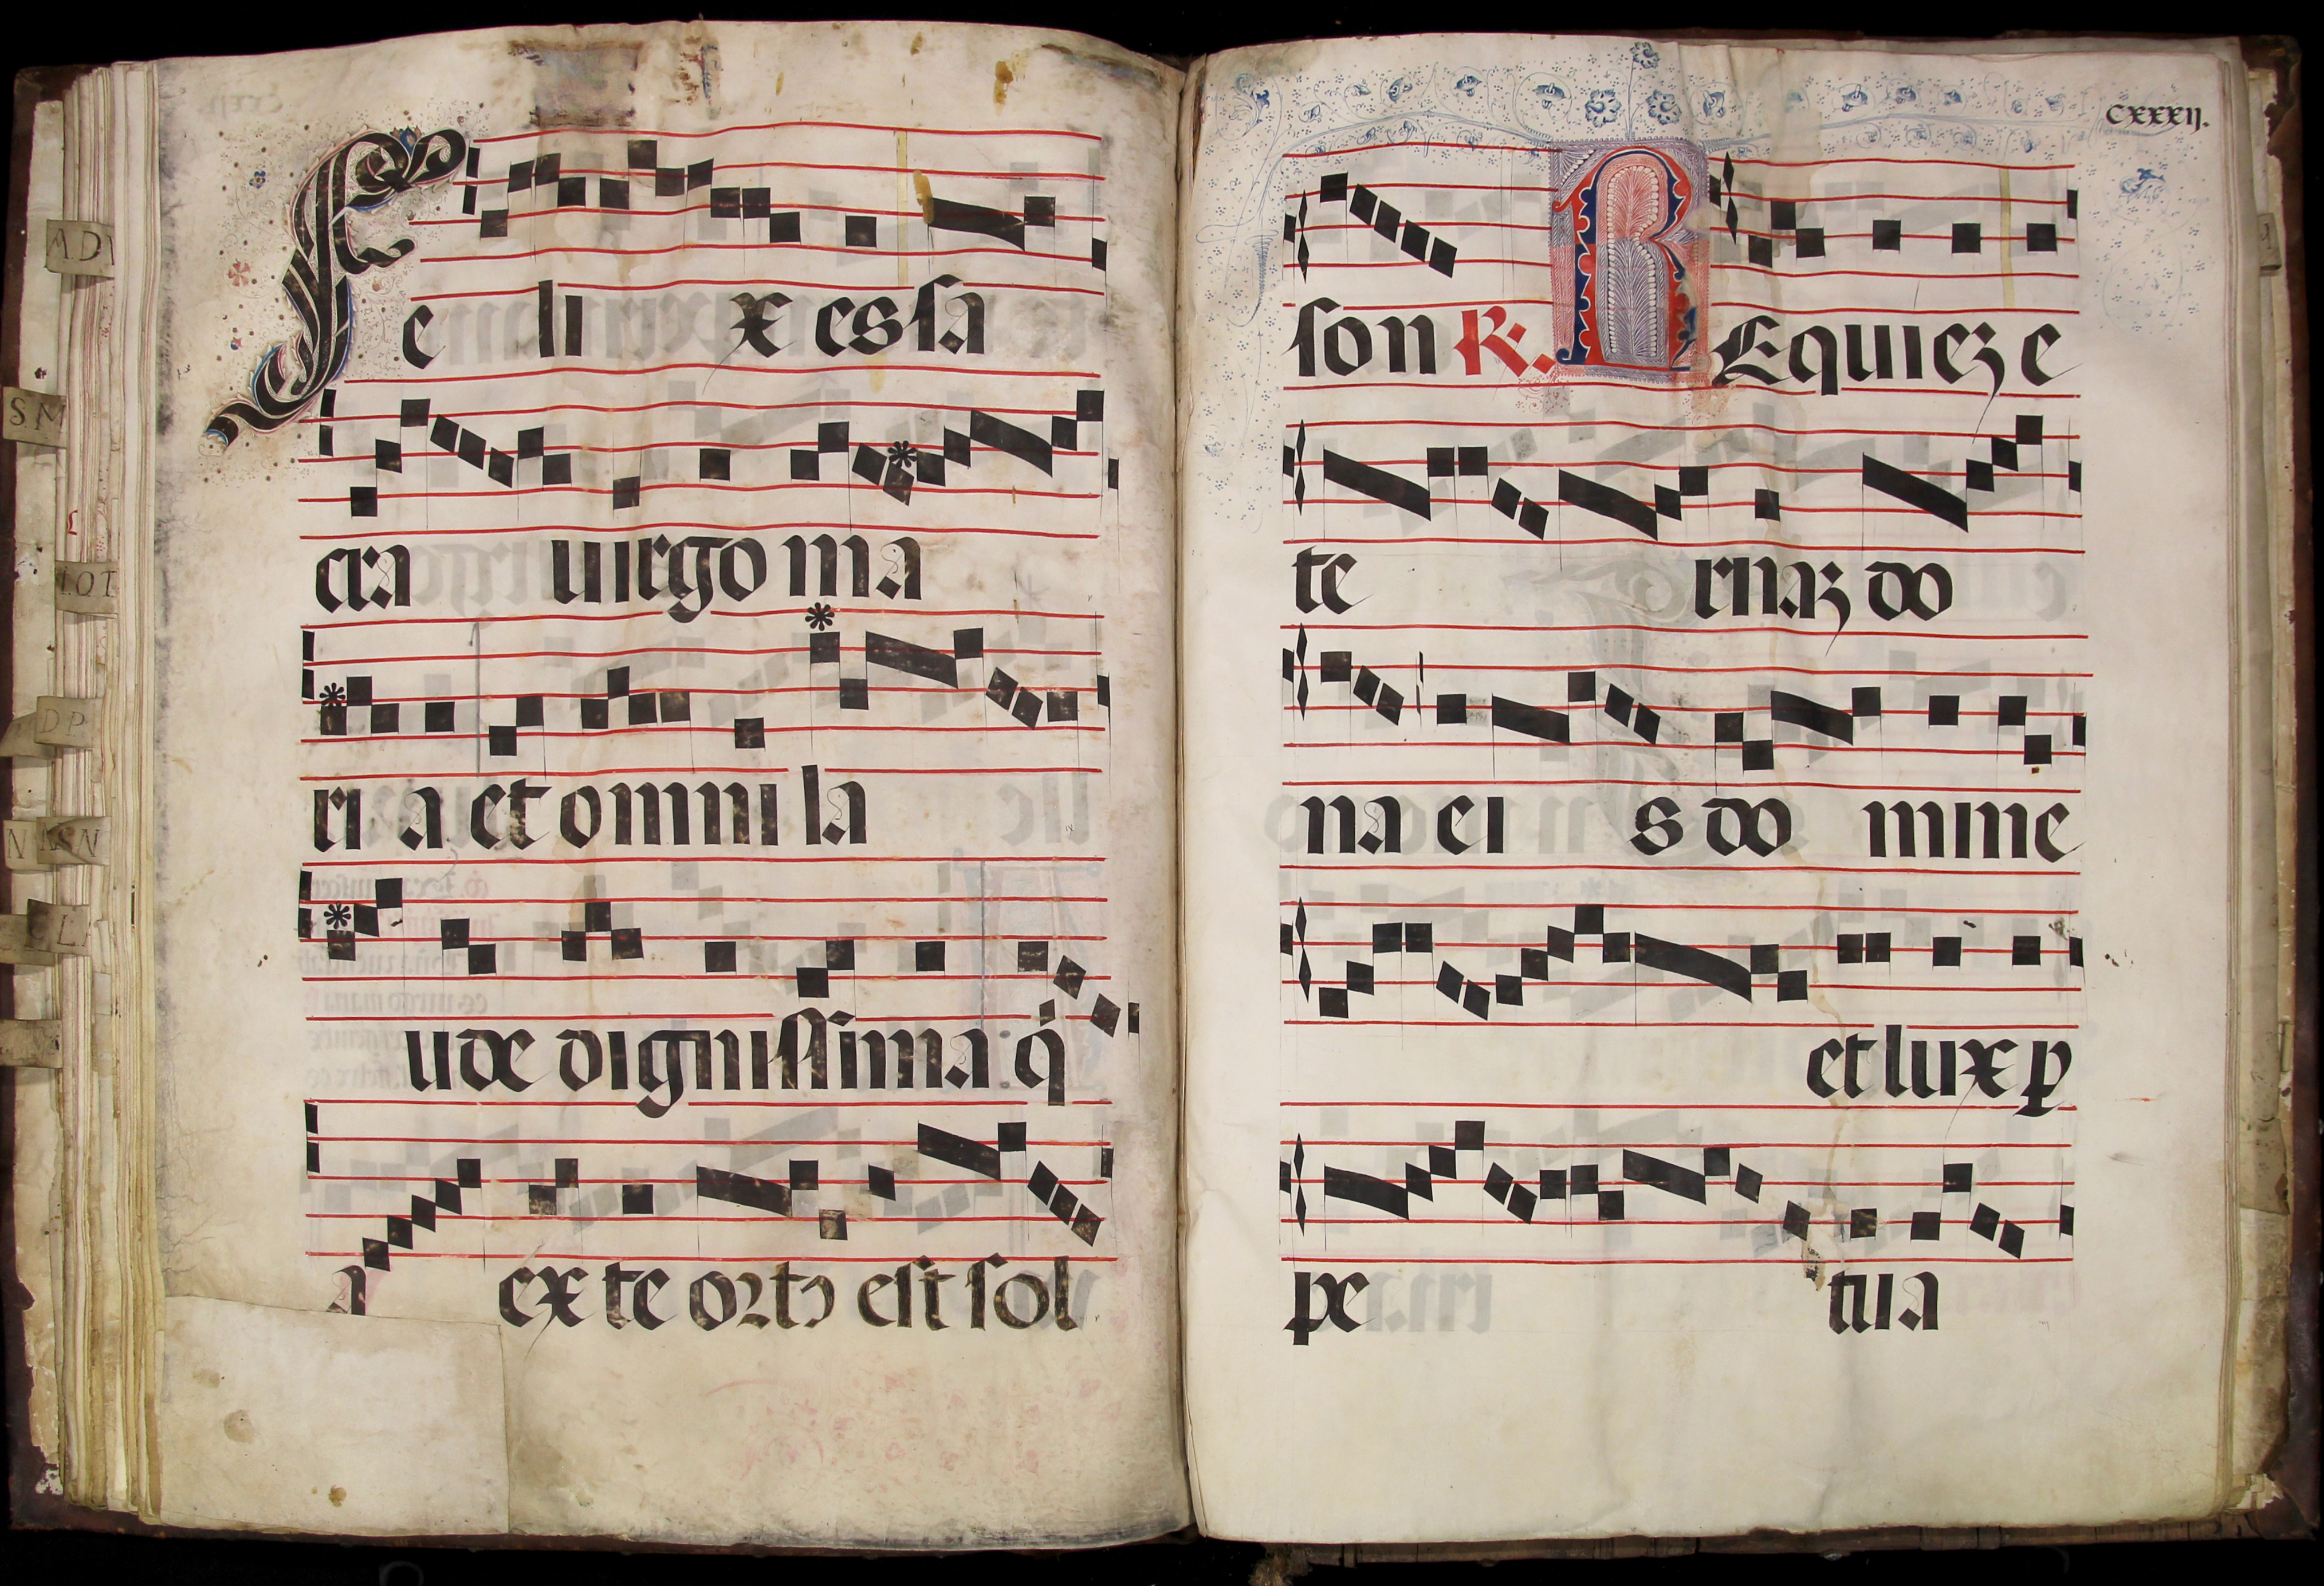 Fe li x es sa
cra uirgo ma
ri a et omni la
ude dignissima q̇
a ex te ortꝰ est sol
CXXXIJ.
son R̸. REquieꝫ e
te rnaꝫ do
na ei s do mine
et lux ꝑ
pe tua
AD
SM
IOT
DP
N
SN
L